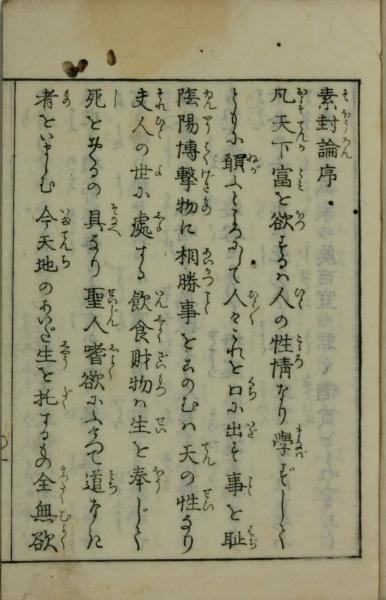 素封論序
凡天下富を欲するハ人の性情なり學ずして
ともに願ふところにして人々これを口に出す事を恥
陰陽博撃物に相勝事をこのむハ天の性なり
夫人の世に處する飲食財物ハ生を奉じ
死をおくるの具なり聖人嗜欲に て道なに
者をいましむ今天地のあいだ生を托するもの全無欲